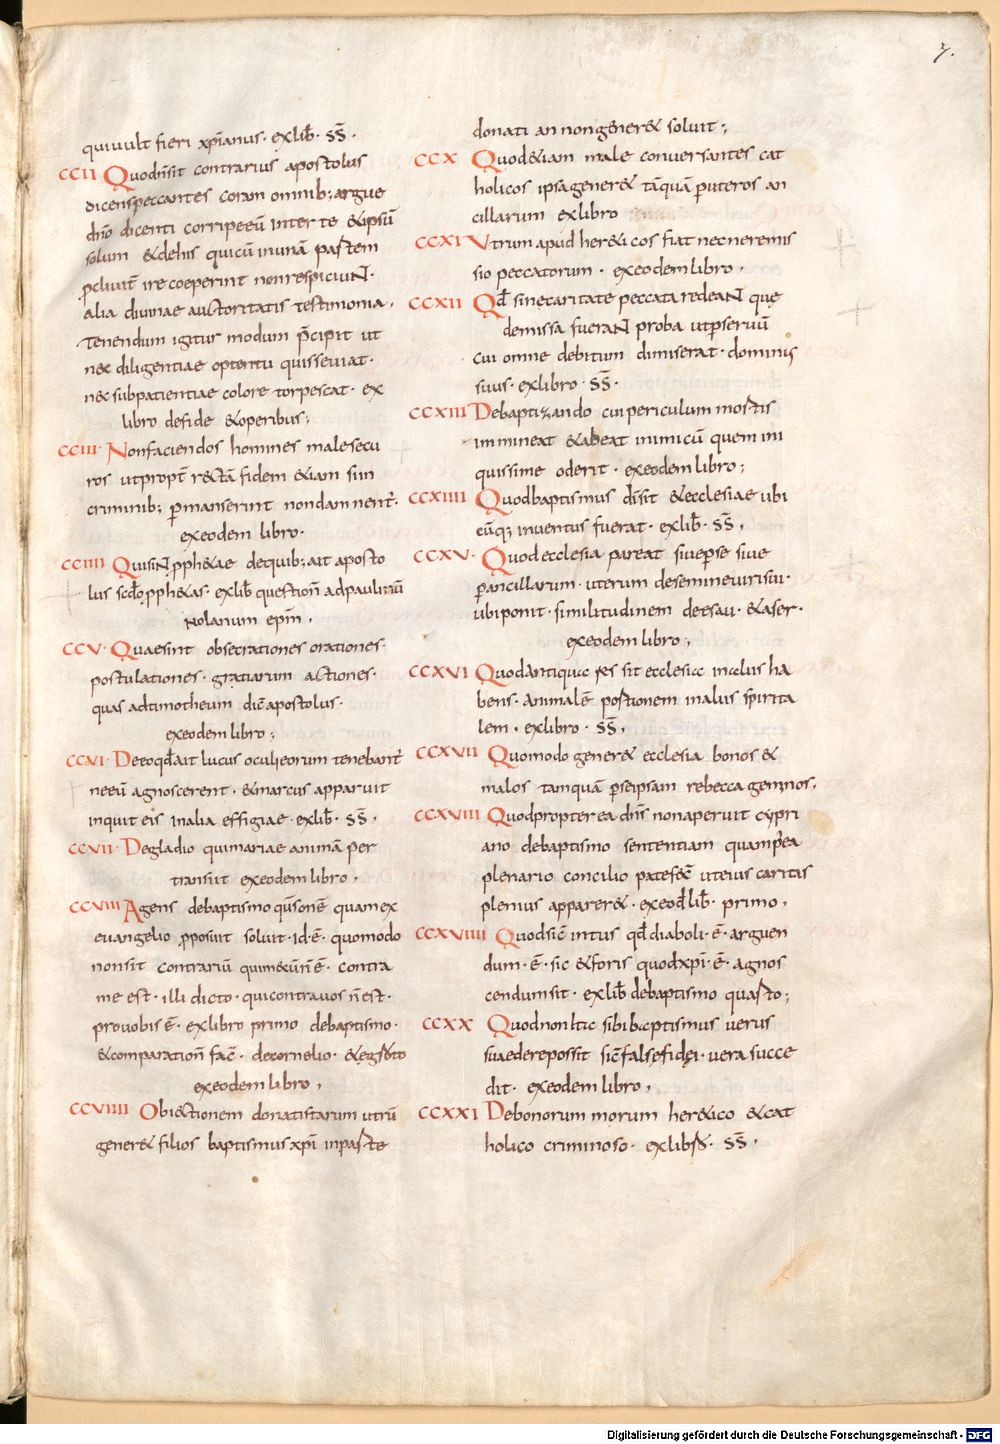 7.
qui uult fieri xp̄ianus · ex lib̄ · ss̄ ·
CCII Quod n̄ sit contrarius apostolus
dicens peccantes coram omnib; argue
dn̄o dicenti corripe eū inter te & ipsū
solum & de his qui cū in unā partem
p̄cliuit̄ ire coeperint non respiciunt ·
alia diuinae auctoritatis testimonia ·
Tenendum igitur modum p̄cipit ut
nec diligentiae optentu quis seuiat ·
nec sub patientiae colore torpescat · ex
libro de fide & operibus;
CCIII · Non faciendos homines male secu
ros ut propt̄ rectā fidem &iam si in
criminib; p̄manserint non damnent̄ ·
ex eodem libro ·
CCIIII Qui sint pph&ae de quib; ait aposto
lus scd̄o pph&as · ex lib̄ question̄ ad paulinū
nolanum ep̄m ·
CCV · Quae sint obsecrationes orationes ·
postulationes · gratiarum actiones ·
quas ad timotheum dic̄ apostolus ·
ex eodem libro;
CCVI · De eo qd̄ ait lucus oculi eorum tenebant̄
ne eū agnoscerent · & marcus apparuit
inquit eis in alia effigiae · ex lib̄ · ss̄ ·
CCVII · De gladio qui mariae animā per
transiit ex eodem libro ·
CCVIII Agens de baptismo q̄sonē quam ex
euangelio p̄posuit soluit · id · ē · quomodo
non sit contrariū qui mecū n̄ ē · contra
me est · illi dicto · qui contra uos n̄ est ·
pro uobis ē · ex libro primo de baptismo ·
& comparation̄ fac̄ · de cornelio ·
ex eodem libro ·
CCVIIII Obiectionem donatistarum utrū
gener& filios baptismus xp̄i in parte
donati an non gener& soluit ·;
CCX Quod &iam male conuersantes cat
holicos ipsa gener& tāquā p̄ uteros an
cillarum ex libro
CCXI Utrum apud her&icos fiat nec ne remis
sio peccatorum · ex eodem libro ·
CCXII Qd̄ sine caritate peccata redeant quę
demissa fuerant proba ut p̄ seruū
cui omne debitum dimiserat · dominus
suus · ex libro · ss̄ ·
CCXIII De baptizando cui periculum mortis
immineat & abeat inimicū quem ini
quissime oderit · ex eodem libro;
CCXIIII Quod baptismus dī sit & ecclesiae ubi
cūq; inuentus fuerat · ex lib̄ · ss̄ ·
CCXV · Quod ecclesia pareat siue p̄ se siue
p̄ ancillarum · uterum de semine uiri sui ·
ubi ponit · similitudinem de esau · & aser ·
ex eodem libro;
CCXVI Quod antiqua res sit ecclesia malus ha
bens · animalē portionem malus spirita
lem · ex libro · ss̄ ·
CCXVII Quomodo gener& ecclesia bonos &
malos tamquā p̄ se ipsam rebecca geminos ·
CCXVIII Quod propterea dn̄s non aperuit cypri
ano de baptismo sententiam quam p̄ ea
plenario concilio patefec̄ ut eius caritas
plenius apparer& · ex eod̄ lib̄ · primo ·
CCXVIIII Quod sic̄ intus qd̄ diaboli · ē · arguen
dum · ē · sic & foris quod xp̄i · ē · agnos
cendum sit · ex lib̄ de baptismo quarto;
CCXX Quod non hic sibi baptismus uerus
suaede re possit sic̄ falsę fidei · uera succe
dit · ex eodem libro ·
CCXXI De bonorum morum her&ico & cat
holico criminoso · ex lib · ss̄ ·
Digitalisierung gefördert durch die Deutsche Forschungsgemeinschaft - DFG